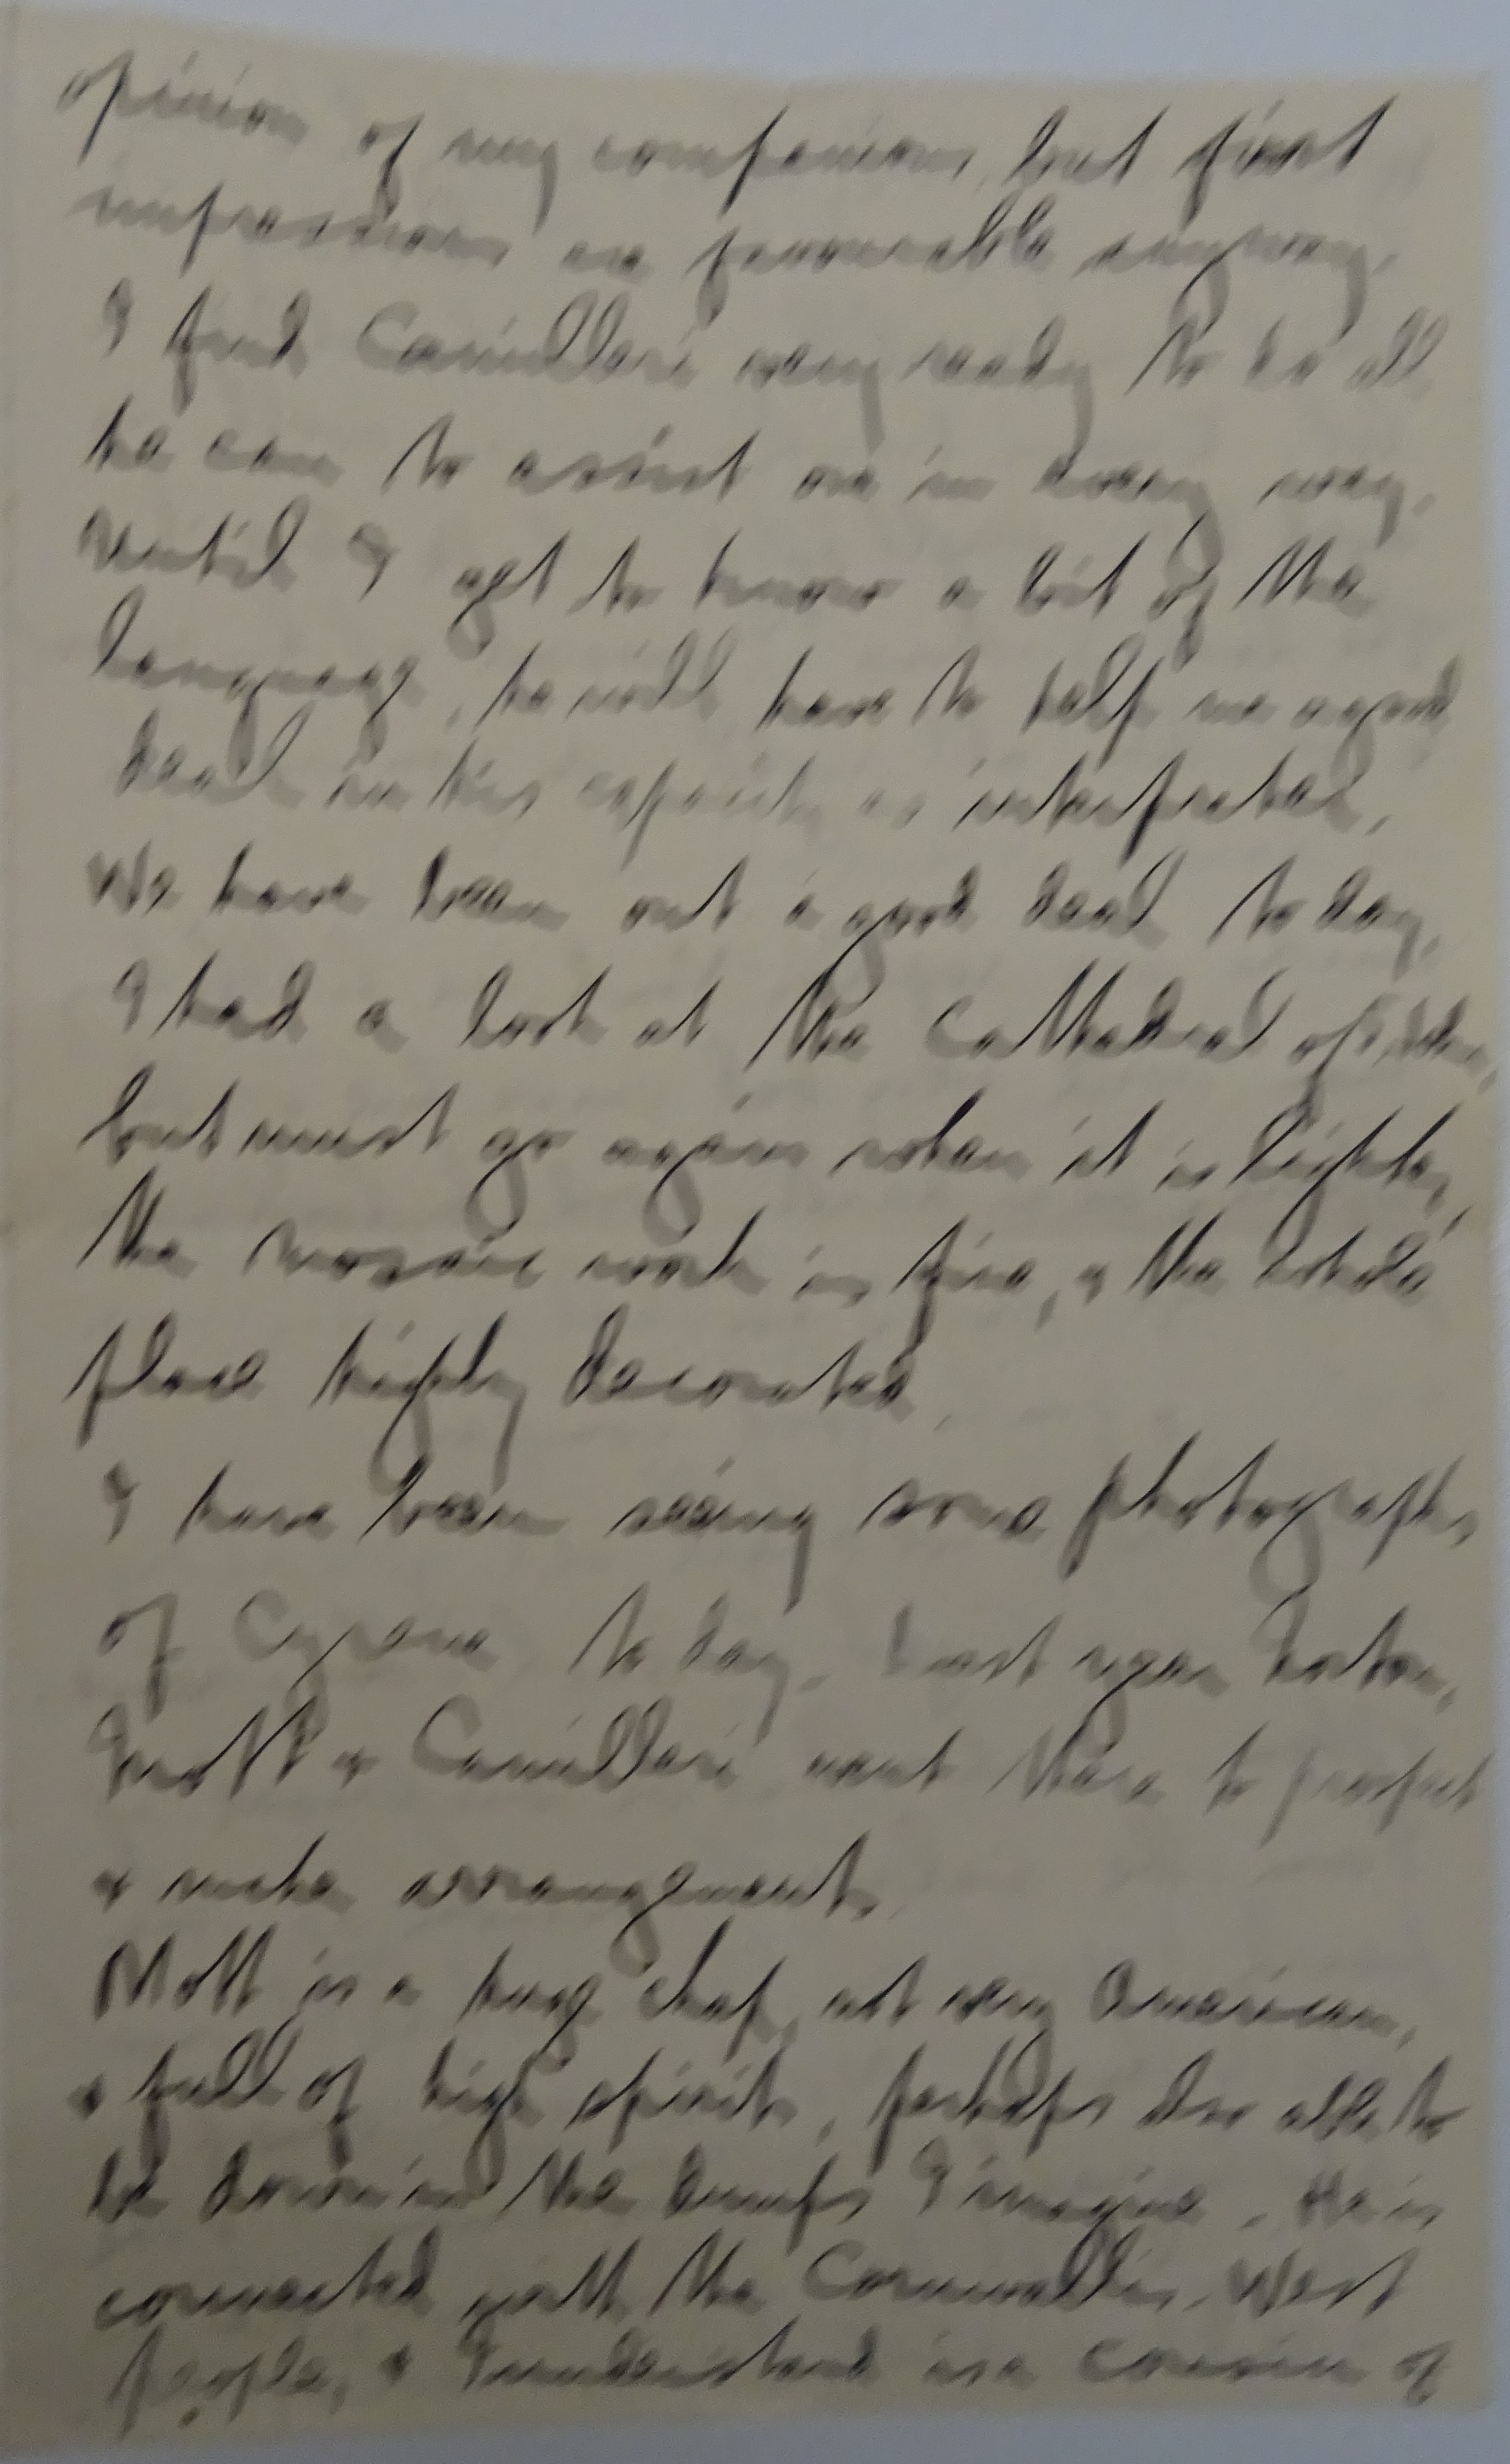 opinion of my companions, but first
impressions are favourable anyway.
I find Camilleri very ready to do all
he can to assist one in every way.
Until I get to know a bit of the
language, he will have to help me a good
deal in his capacity as interpreter.
We have been out a good deal to day,
I had a look at the Cathedral of
but must go again when it is lighter,
the mosaic work is fine, & the whole
place highly decorated.
I have been seeing some photographs
of Cyrene to day. Last year Norton,
Mott & Camilleri went there to prospect
& make arrangements.
Mott is a huge chap, not very American,
& full of high spirits, perhaps also able to
be down in the dumps I imagine. He is
connected with the Cornwallis. West
people, & I understand is a cousin of